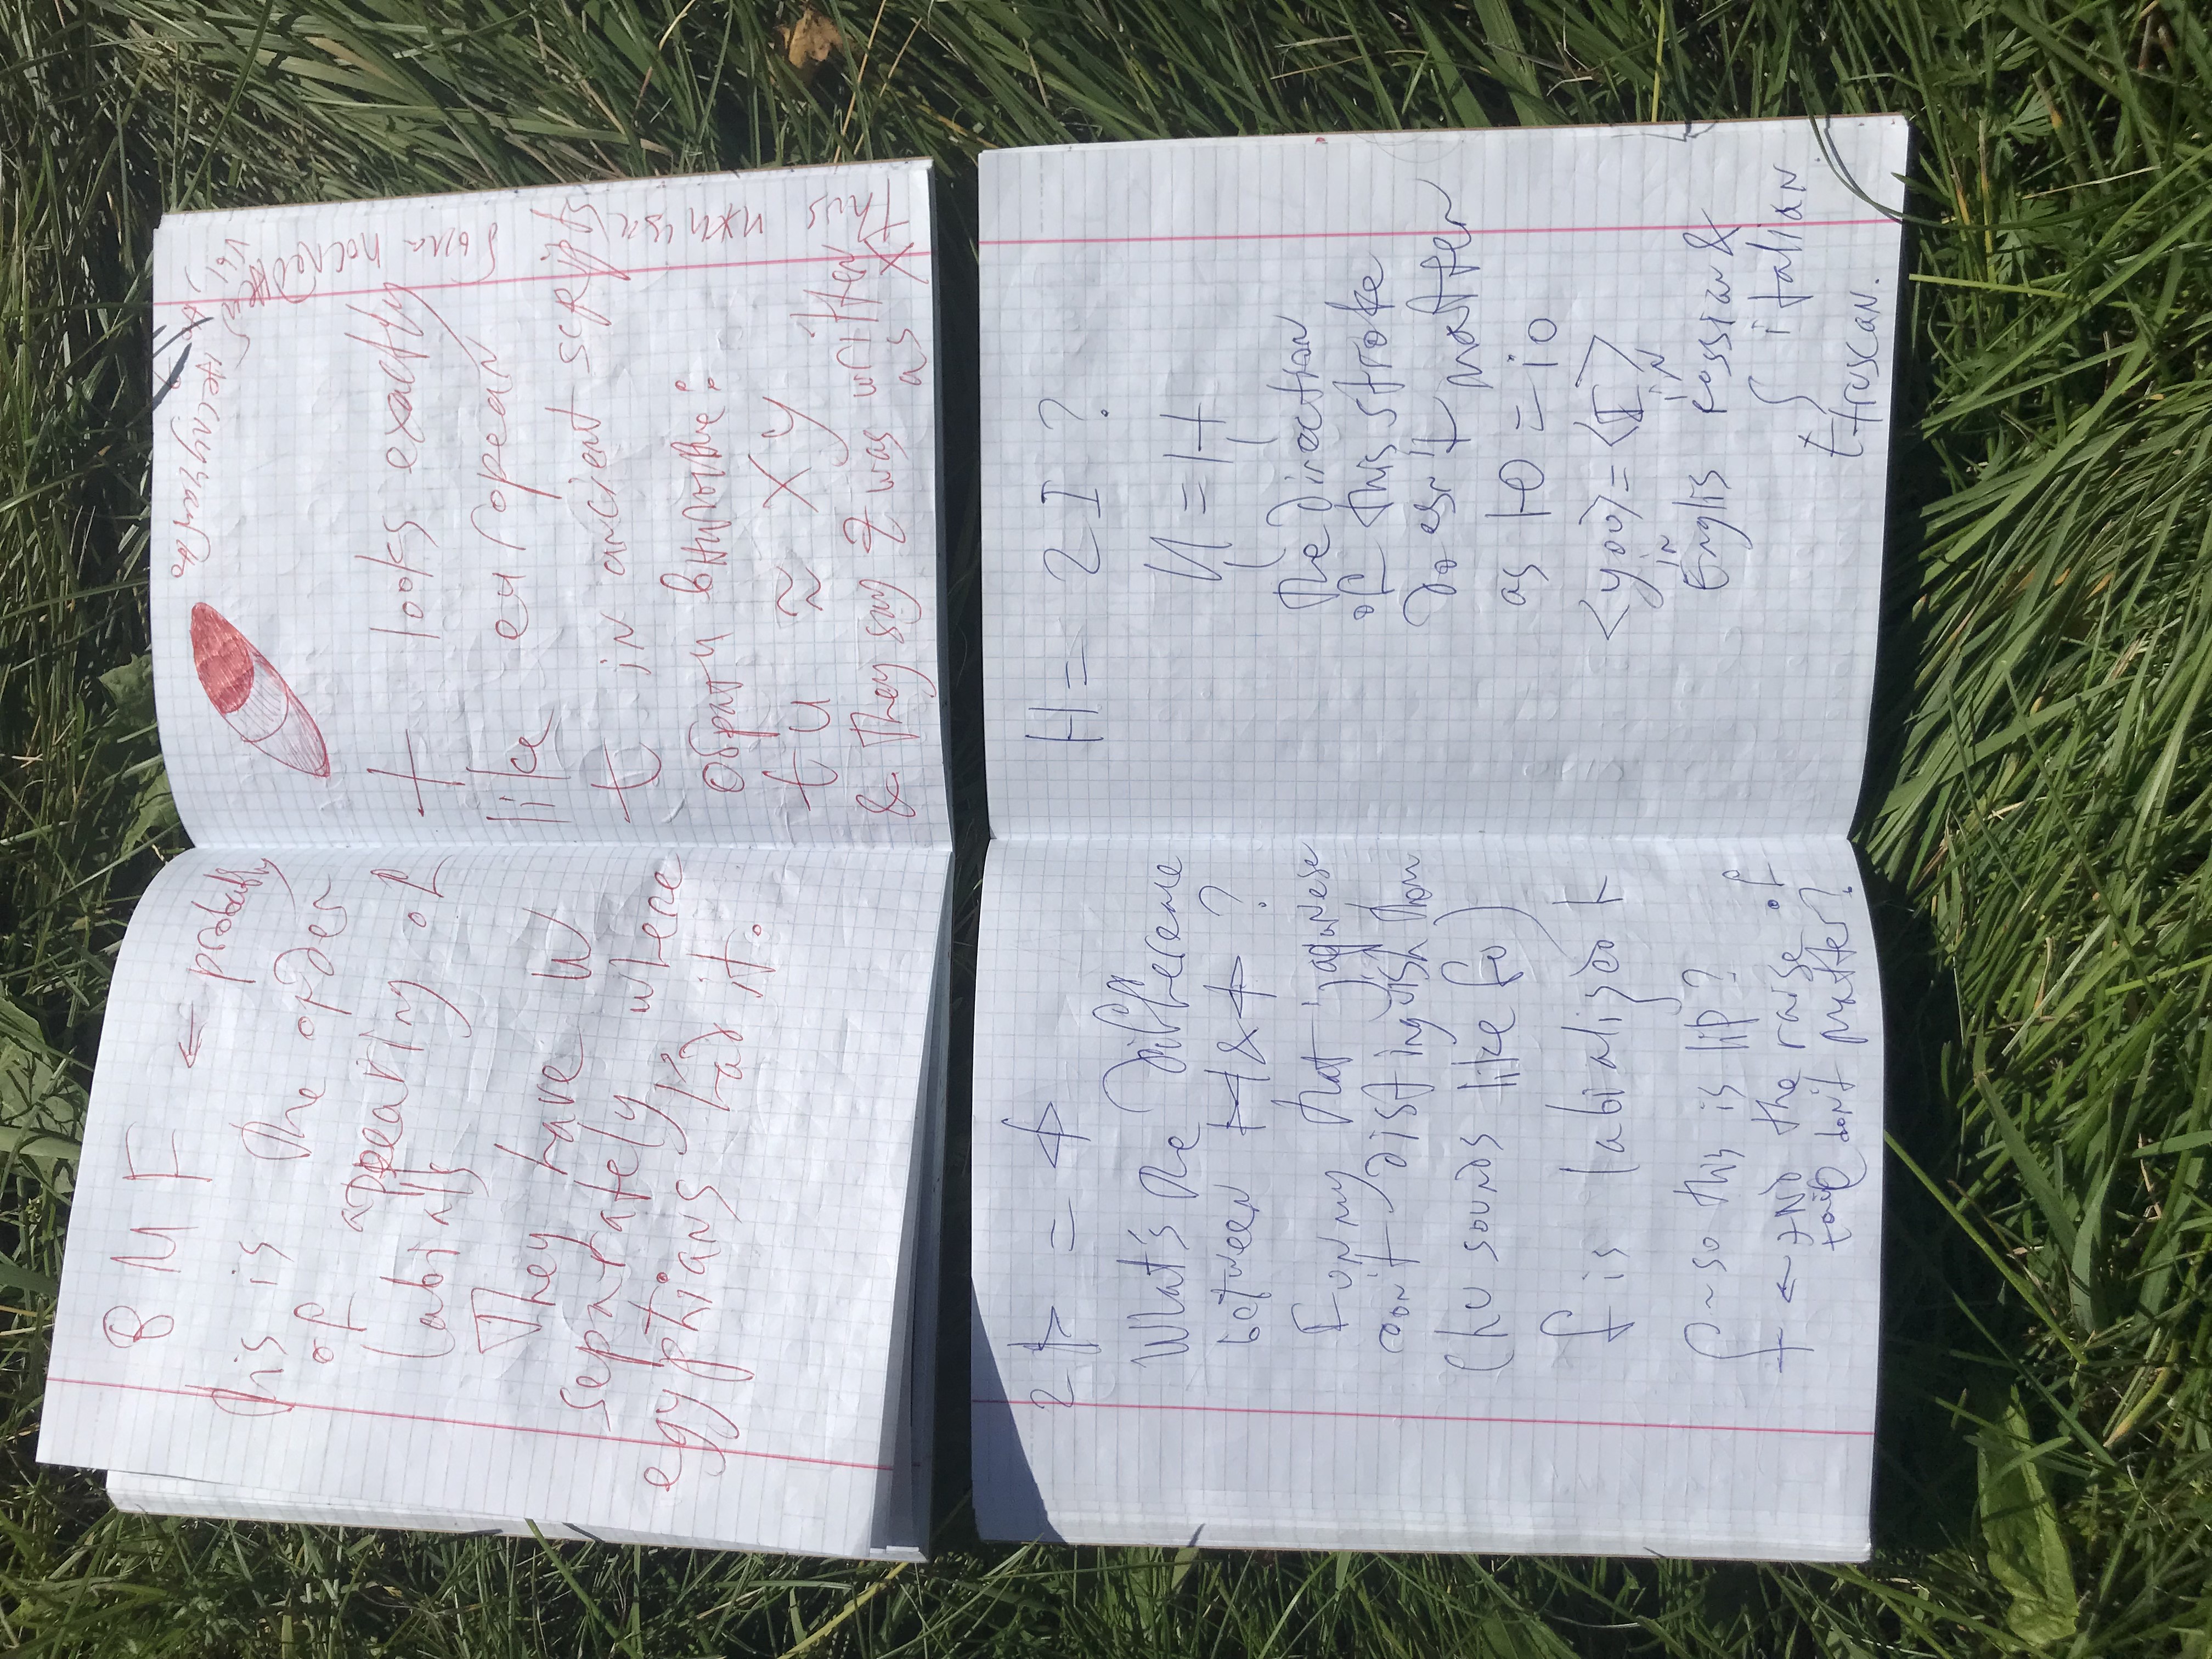 B M F ← probably
this is the order
of appearing of
labials
They have W
separately, where
egyptians had it.
t looks exactly
like european
t in ancient scripts
обрати внимание:
tu ≈ XY
& they say Z was written
as X
2 = ф
What's the difference
between & ?
Funny that japanese
don't distinguish them
(hu sounds like fu)
f is labialized t
~ so this is lip?
← and the raise of
tail don't matter?
H = 2I ?
И = H
the direction
of this stroke
doesn't matter
as Ю = io
<you> = <I>
in in
Englis Russian &
italian.
Etruscan.